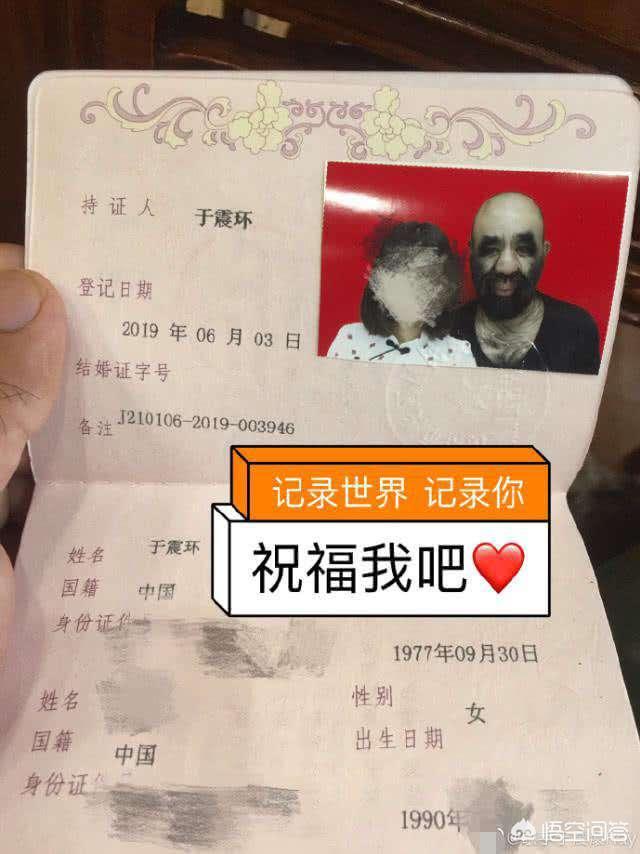 持证人 于震环
登记日期
2019 年 06 月 03 日
结婚证字号
J210106-2019-003946
备注
记录世界 记录你
祝福我吧
姓名 于震环
国籍 中国
身份证件
1977年09月30日
姓名
性别 女
国籍 中国
出生日期
身份证
1990年
悟空问答